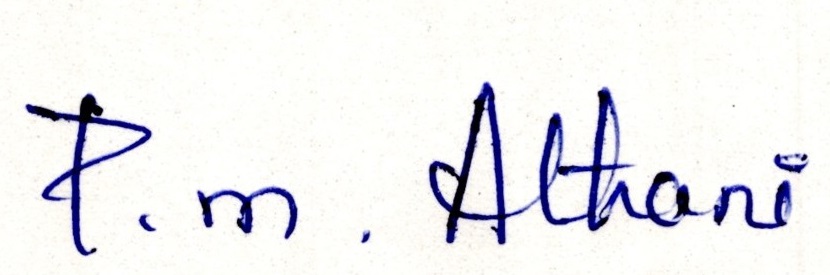 P. m. Althani